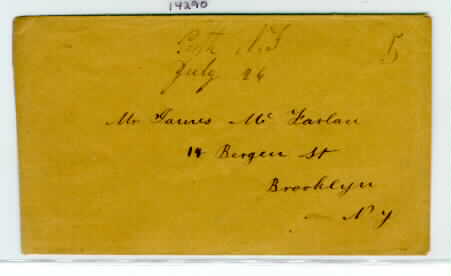 14290
N.Y
5
July 26
Mr James Mc Farlan
14 Bergen St
Brooklyn
N Y